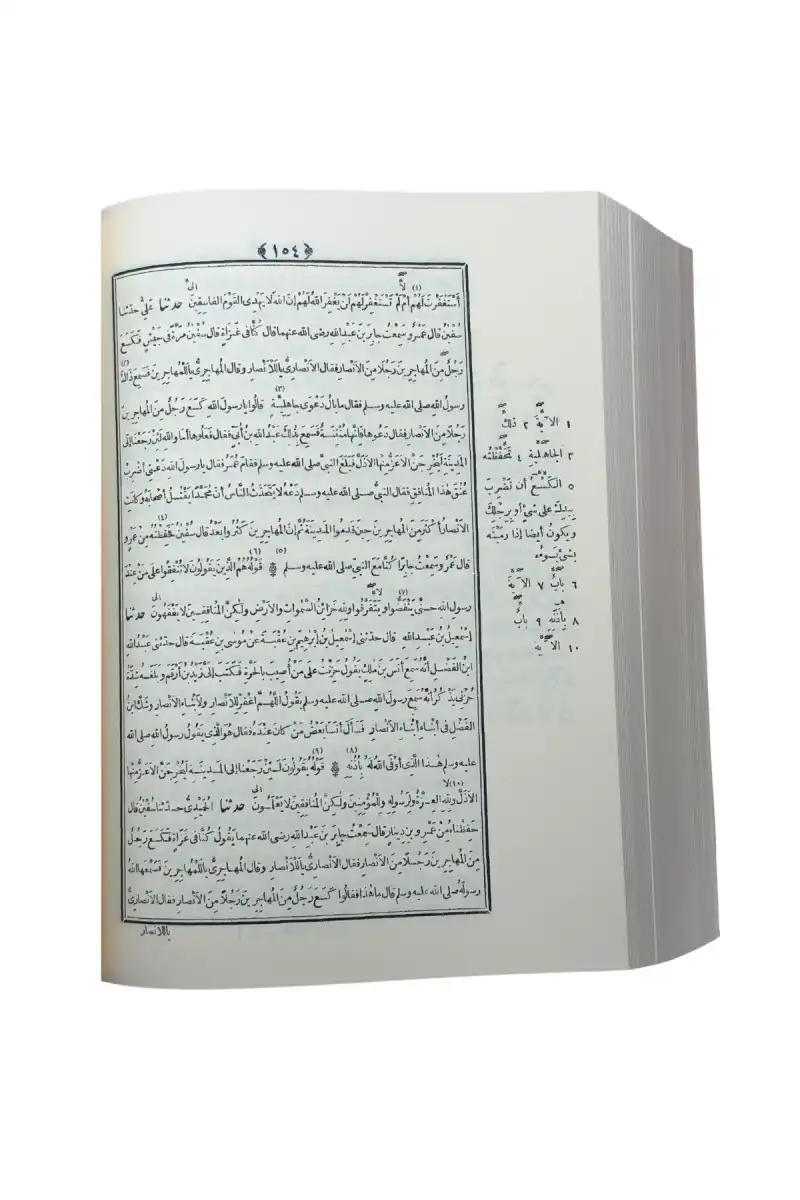 ﴿١٥٤﴾
أَسْتَغْفَرْتَ لَهُمْ أَمْ لَمْ تَسْتَغْفِرْ لَهُمْ لَنْ يَغْفِرَ اللهُ لَهُمْ إِنَّ اللهَ لَا يَهْدِى الْقَوْمَ الْفَاسِقِينَ حدثنا عَلِىٌّ حدثنا
سُفْيٰنُ قال عَمْرٌو سَمِعْتُ جابِرَ بنَ عَبْدِ اللهِ رضى الله عنهما قال كُنَّا فى غَزَاةٍ قال سُفْيٰنُ مَرَّةً فى جَيْشٍ فَكَسَعَ
رَجُلٌ مِنَ المُهاجِرِينَ رَجُلًا مِنَ الأَنْصارِ فقال الأَنْصارِىُّ يا لَلْأَنْصارِ وقال المُهاجِرِىُّ يا لَلْمُهاجِرِينَ فَسَمِعَ ذَاكَ
رسولُ اللهِ صلى الله عليه وسلم فقال ما بالُ دَعْوَى جاهِلِيَّةٍ قالُوا يا رسولَ اللهِ كَسَعَ رَجُلٌ مِنَ المُهاجِرِينَ
رَجُلًا مِنَ الأَنْصارِ فقال دَعُوها فَإِنَّها مُنْتِنَةٌ فَسَمِعَ بِذٰلِكَ عَبْدُ اللهِ بنُ أُبَىٍّ فقال فَعَلُوها أَما واللهِ لَئِنْ رَجَعْنا إِلَى
المَدِينَةِ لَيُخْرِجَنَّ الأَعَزُّ مِنْها الأَذَلَّ فَبَلَغَ النبىَّ صلى الله عليه وسلم فقامَ عُمَرُ فقال يا رسولَ اللهِ دَعْنِى أَضْرِبْ
عُنُقَ هٰذا المُنافِقِ فقال النبىُّ صلى الله عليه وسلم دَعْهُ لا يَتَحَدَّثُ النَّاسُ أَنَّ مُحَمَّدًا يَقْتُلُ أَصْحابَهُ وكانَتِ
الأَنْصارُ أَكْثَرَ مِنَ المُهاجِرِينَ حِينَ قَدِمُوا المَدِينَةَ ثُمَّ إِنَّ المُهاجِرِينَ كَثُرُوا بَعْدُ قال سُفْيٰنُ فَحَفِظْتُهُ مِنْ عَمْرٍو
قال عَمْرٌو سَمِعْتُ جابِرًا كُنَّا مَعَ النبىِّ صلى الله عليه وسلم قَوْلُهُ هُمُ الَّذِينَ يَقُولُونَ لَا تُنْفِقُوا عَلَى مَنْ عِنْدَ
رسولِ اللهِ حَتَّى يَنْفَضُّوا وَيَتَفَرَّقُوا ولِلّٰهِ خَزائِنُ السَّمٰواتِ والأَرْضِ ولٰكِنَّ المُنافِقِينَ لا يَفْقَهُونَ حدثنا
إِسْمٰعِيلُ بنُ عَبْدِ اللهِ قال حدثنى إِسْمٰعِيلُ بنُ إِبْرٰهِيمَ بنِ عُقْبَةَ عَنْ مُوسَى بنِ عُقْبَةَ قال حدثنى عَبْدُ اللهِ
ابنُ الفَضْلِ أَنَّهُ سَمِعَ أَنَسَ بنَ مٰلِكٍ يَقُولُ حَزِنْتُ عَلَى مَنْ أُصِيبَ بالحَرَّةِ فَكَتَبَ إِلَىَّ زَيْدُ بنُ أَرْقَمَ وبَلَغَهُ شِدَّةُ
حُزْنِى يَذْكُرُ أَنَّهُ سَمِعَ رسولَ اللهِ صلى الله عليه وسلم يَقُولُ اللَّهُمَّ اغْفِرْ لِلْأَنْصارِ ولِأَبْناءِ الأَنْصارِ وشَكَّ ابنُ
الفَضْلِ فى أَبْناءِ أَبْناءِ الأَنْصارِ فَسَأَلَ أَنَسًا بَعْضُ مَنْ كانَ عِنْدَهُ فقال هُوَ الَّذِى يَقُولُ رسولُ اللهِ صلى الله
عليه وسلم هٰذا الَّذِى أَوْفَى اللهُ لَهُ بِأُذُنِهِ قَوْلُهُ يَقُولُونَ لَئِنْ رَجَعْنا إِلَى المَدِينَةِ لَيُخْرِجَنَّ الأَعَزُّ مِنْها
الأَذَلَّ ولِلّٰهِ العِزَّةُ ولِرَسُولِهِ ولِلْمُؤْمِنِينَ ولٰكِنَّ المُنافِقِينَ لا يَعْلَمُونَ حدثنا الحُمَيْدِىُّ حدثنا سُفْيٰنُ قال
حَفِظْناهُ مِنْ عَمْرِو بنِ دِينارٍ قال سَمِعْتُ جابِرَ بنَ عَبْدِ اللهِ رضى الله عنهما يَقُولُ كُنَّا فى غَزَاةٍ فَكَسَعَ رَجُلٌ
مِنَ المُهاجِرِينَ رَجُلًا مِنَ الأَنْصارِ فقال الأَنْصارِىُّ يا لَلْأَنْصارِ وقال المُهاجِرِىُّ يا لَلْمُهاجِرِينَ فَسَمَّعَها اللهُ
رسولَهُ صلى الله عليه وسلم قال ما هٰذا فقالُوا كَسَعَ رَجُلٌ مِنَ المُهاجِرِينَ رَجُلًا مِنَ الأَنْصارِ فقال الأَنْصارِىُّ
يا للانصار
١ الآيَةَ ٢ ذٰلِكَ
٣ الجاهِلِيَّةِ ٤ تَحَفَّظْتُه
٥ الكَسْعُ أن تَضْرِبَ
بِيَدِكَ على شىءٍ أو بِرِجْلِكَ
ويكون أيضا إذا رَمَيْتَه
بشىءٍ يَسُوءُه
٦ بابٌ ٧ الآيةَ
٨ بِأُذُنِه ٩ بابٌ
١٠ الآيَة